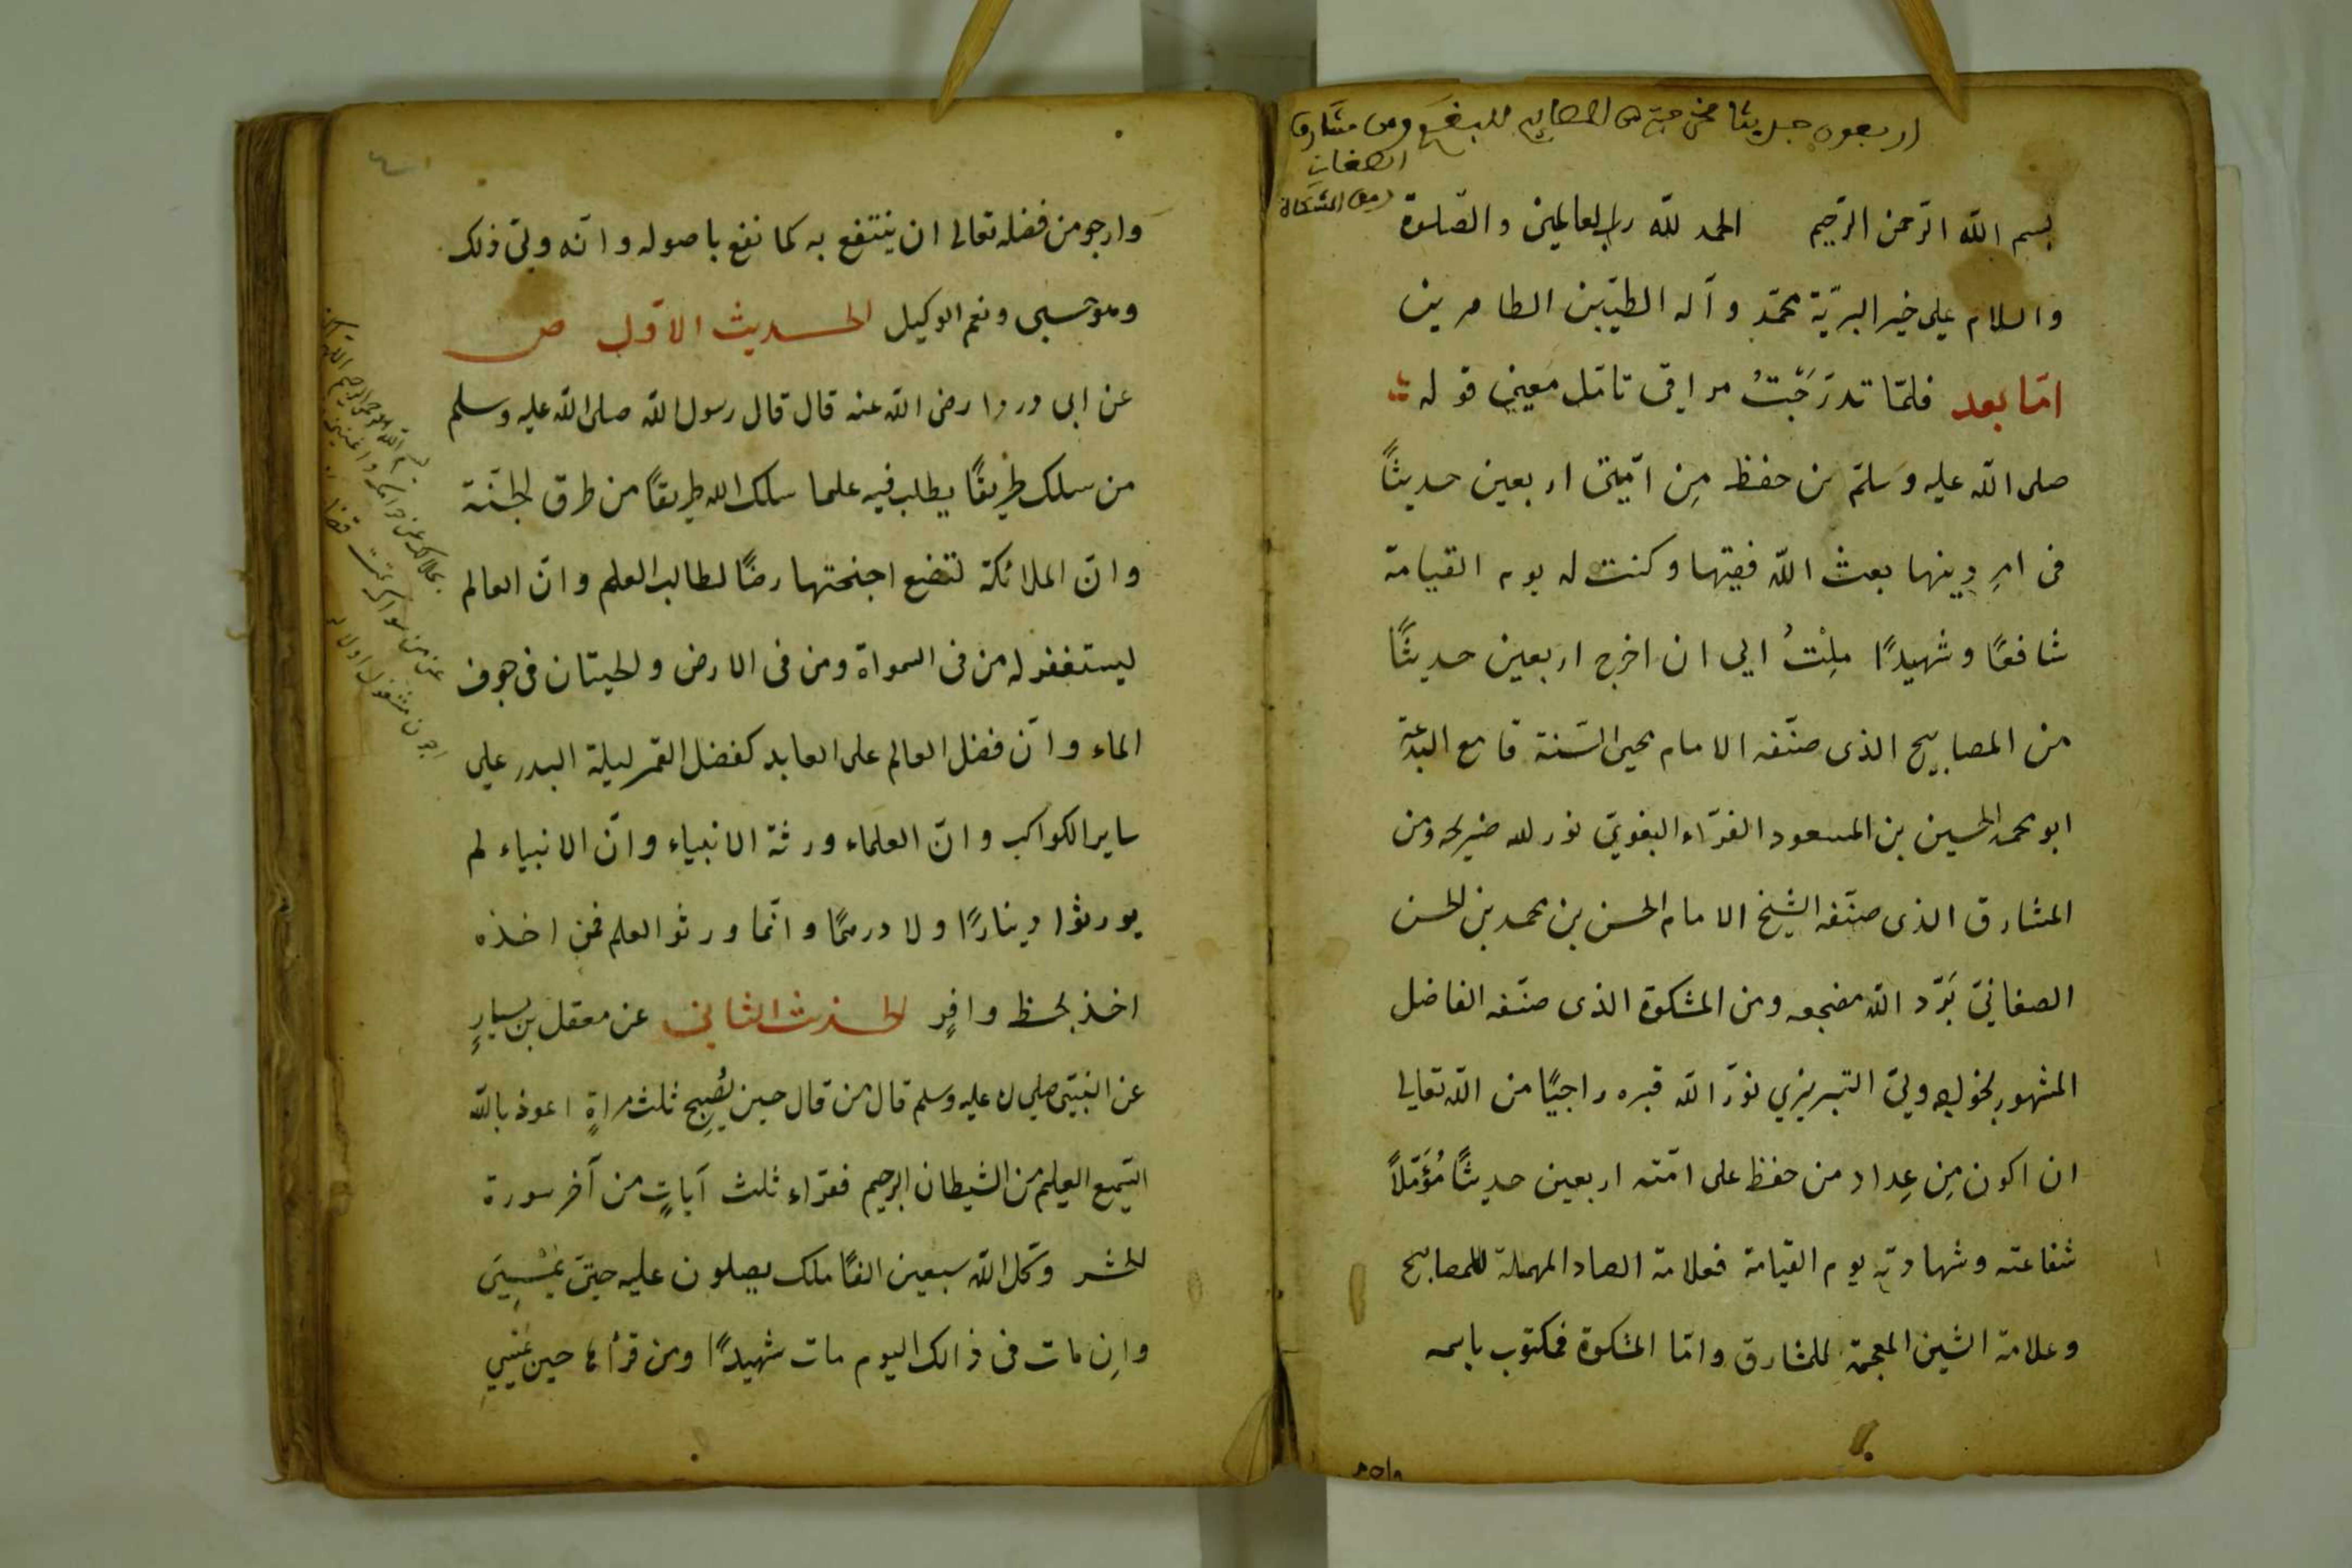 اربعون حديثا مخرجة من المصابيح للبغوي ومن مشارق
الصغاني
ومن المشكاة
بسم الله الرّحمن الرّحيم الحمد للّه ربّ العالمين والصّلوة
والسلام علي خير البريّة محمّد وآله الطيّبين الطاهرين
امّا بعد فلمّا تدرَّجَتْ مراقى تأمّل معيني قوله
صلى الله عليه وسلّم من حفظ مِن امّتى اربعين حديثاً
فى امرِ دِينها بعث اللّه فقيها وكنت له يوم القيامة
شافعًا وشهيدًا مِلتُ الي ان اخرج اربعين حديثًا
من المصابيح الذى صنّفه الامام محيى السّنة قامع البدعة
ابو محمد الحسين بن المسعود الفرّاء البغويّ نور الله ضريحه ومن
المشارق الذى صنّفه الشيخ الامام الحسن بن محمد بن الحسن
الصغانيّ برّد اللّه مضجعه ومن المشكوة الذى صنّفه الفاضل
المشهور بخواجه وليّ التبريزي نوّر اللّه قبره راجيًا من اللّه تعالى
ان اكون مِن عِداد من حفظ على امّته اربعين حديثًا مُؤَمّلاً
شفاعته وشهادته يوم القيامة فعلامة الصاد المهملة للمصابيح
وعلامة الشين المعجمة للمشارق وامّا المشكوة فمكتوب باسمه
وارجو من فضله تعالى ان ينتفع به كما نفع باصوله وانّه وليّ ذلك
وهو حسبى ونعم الوكيل الحديث الاوّل ص
عن ابى دردا رضى اللّه عنه قال قال رسول اللّه صلى اللّه عليه وسلم
من سلك طريقًا يطلب فيه علما سلك الله طريقًا من طرق الجنّة
وانّ الملائكة لتضع اجنحتها رضًا لطالب العلم وانّ العالم
ليستغفر له من فى السمواة ومن فى الارض والحيتان فى جوف
الماء وانّ فضل العالم على العابد كفضل القمر ليلة البدر علي
ساير الكواكب وانّ العلماء ورثة الانبياء وانّ الانبياء لم
يورثوا دينارًا ولا درهمًا وانّما ورثوا العلم فمن اخذه
اخذ بحظ وافرٍ الحديث الثاني عن معقل بن يسارٍ
عن النبيّ صلي الله عليه وسلم قال من قال حين يُصبِح ثلث مراةٍ اعوذ باللّه
السّميع العليم من الشيطان الرجيم فقراء ثلث آياتٍ من آخر سورة
الحشر وكّل اللّه سبعين الفًا ملك يصلون عليه حتيّ يمْسِيَ
وان مات فى ذالك اليوم مات شهيدًا ومن قرأها حين يمسي